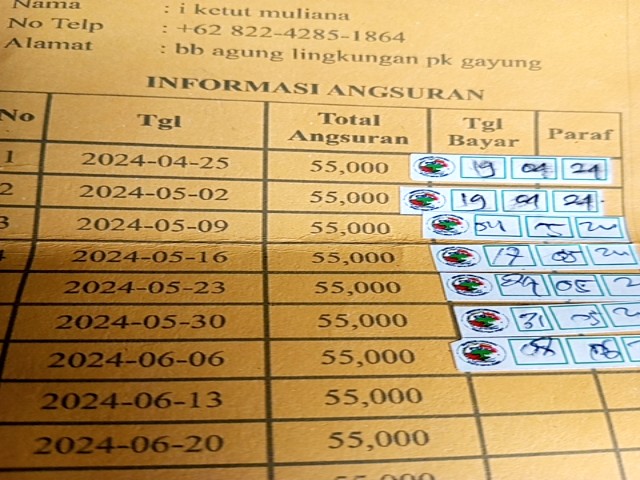 Nama : i ketut muliana
No Telp : +62 822-4285-1864
Alamat : bb agung lingkungan pk gayung
INFORMASI ANGSURAN
No Tgl Total Angsuran Tgl Bayar Paraf
1 2024-04-25 55,000 19 04 24
2 2024-05-02 55,000 19 04 24
3 2024-05-09 55,000
2024-05-16 55,000 17 05
2024-05-23 55,000 05
2024-05-30 55,000 31 05
2024-06-06 55,000
2024-06-13 55,000
2024-06-20 55,000